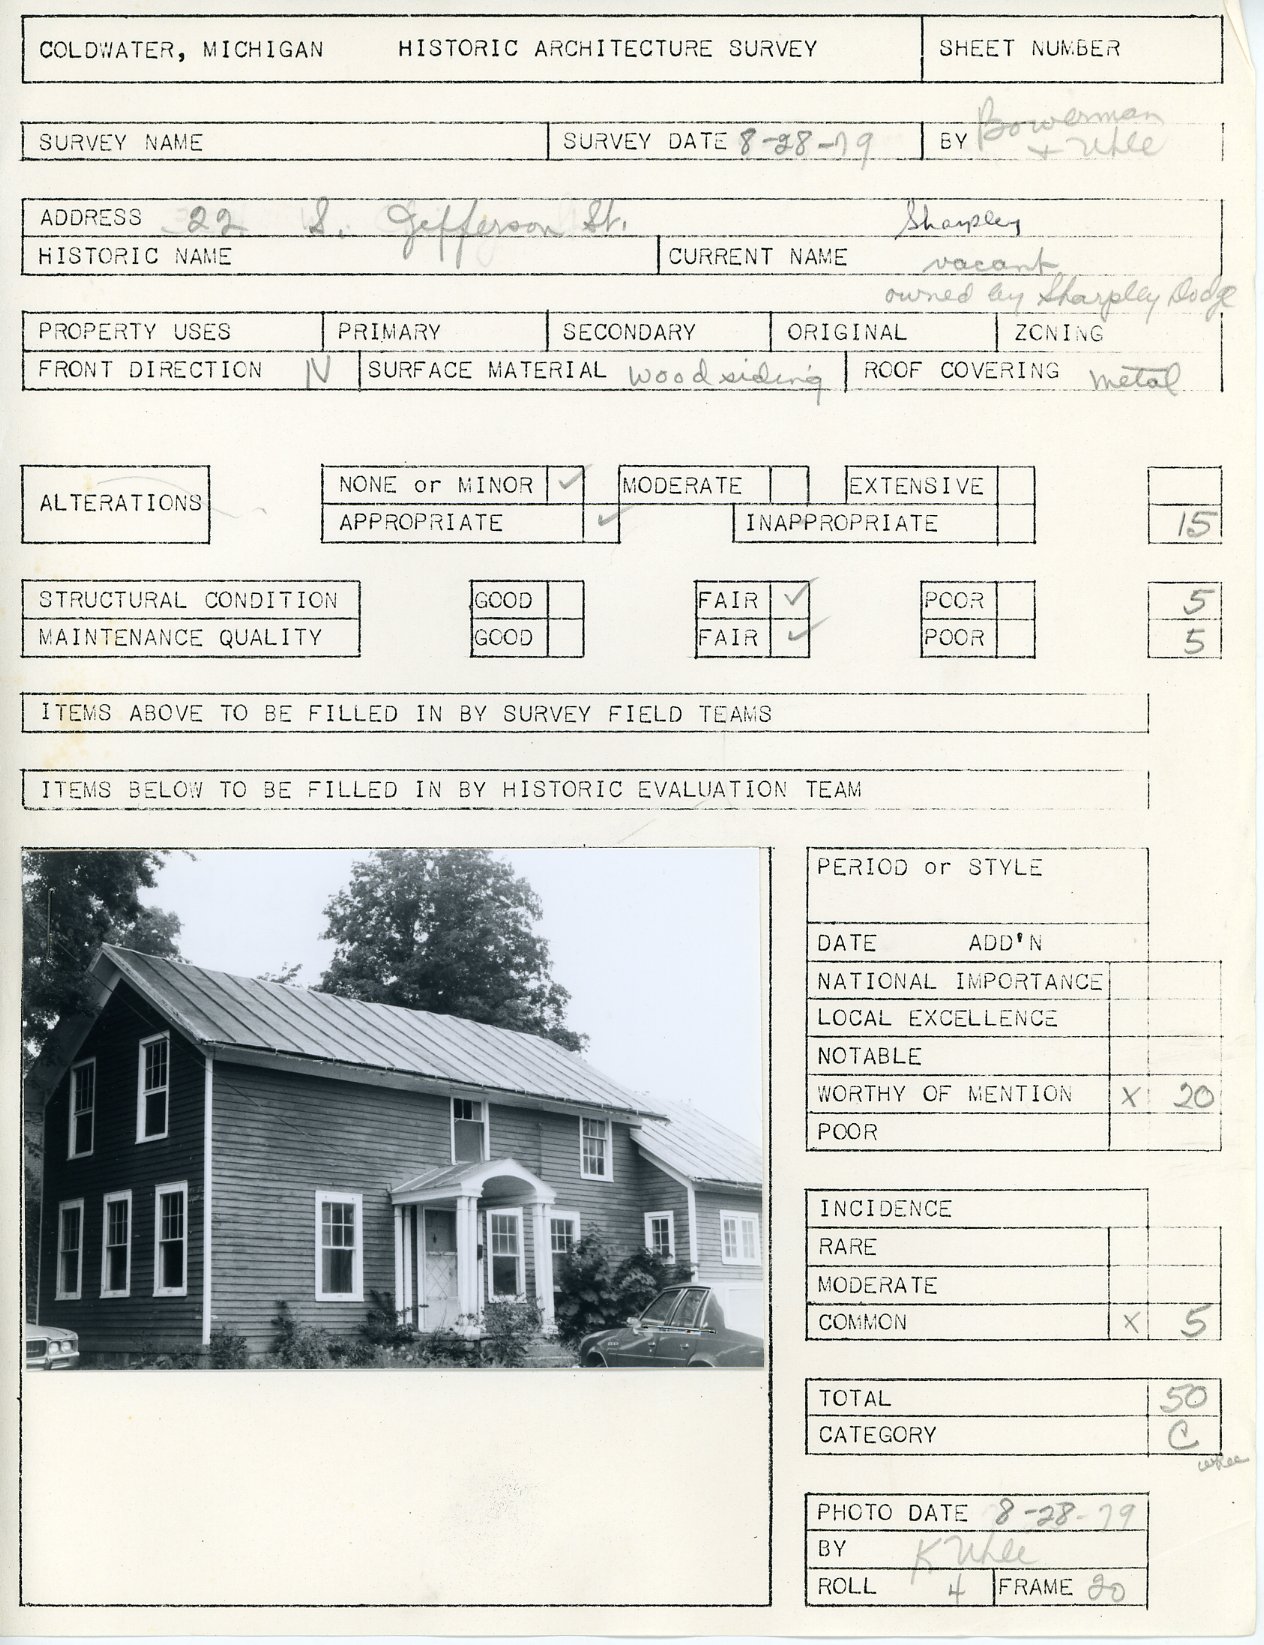 COLDWATER, MICHIGAN HISTORIC ARCHITECTURE SURVEY SHEET NUMBER
SURVEY NAME SURVEY DATE 8-28-79 BY Bowerman
+ Uhle
ADDRESS 22 S. Jefferson St. Sharpley
HISTORIC NAME CURRENT NAME vacant
owned by Sharpley Dodge
PROPERTY USES PRIMARY SECONDARY ORIGINAL ZONING
FRONT DIRECTION N SURFACE MATERIAL wood siding ROOF COVERING metal
ALTERATIONS
NONE or MINOR ✓ MODERATE EXTENSIVE
APPROPRIATE ✓ INAPPROPRIATE 15
STRUCTURAL CONDITION GOOD FAIR ✓ POOR 5
MAINTENANCE QUALITY GOOD FAIR ✓ POOR 5
ITEMS ABOVE TO BE FILLED IN BY SURVEY FIELD TEAMS
ITEMS BELOW TO BE FILLED IN BY HISTORIC EVALUATION TEAM
PERIOD or STYLE
DATE ADD'N
NATIONAL IMPORTANCE
LOCAL EXCELLENCE
NOTABLE
WORTHY OF MENTION X 20
POOR
INCIDENCE
RARE
MODERATE
COMMON X 5
TOTAL 50
CATEGORY C
PHOTO DATE 8-28-79
BY K Uhle
ROLL 4 FRAME 20